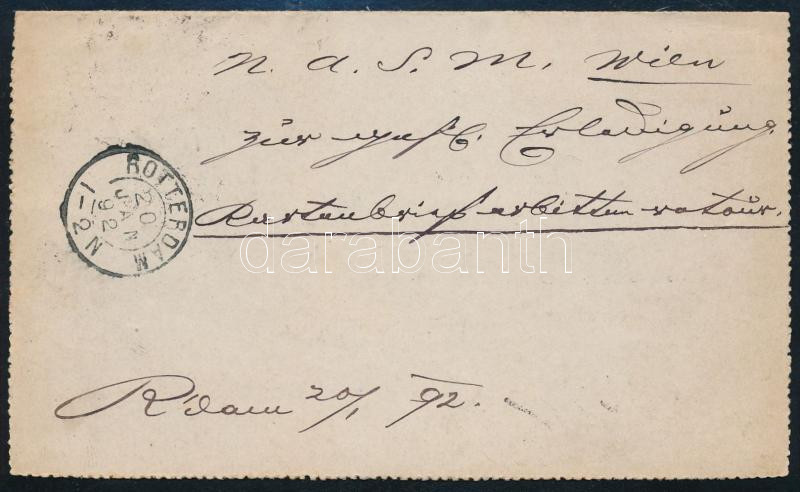 N. A. S. M. Wien
zur gefl. Erledigung
Kartenbrief erbitten retour.
ROTTERDAM
20
JAN
92
1-2 N
darabanth
R'dam 20/1 92.